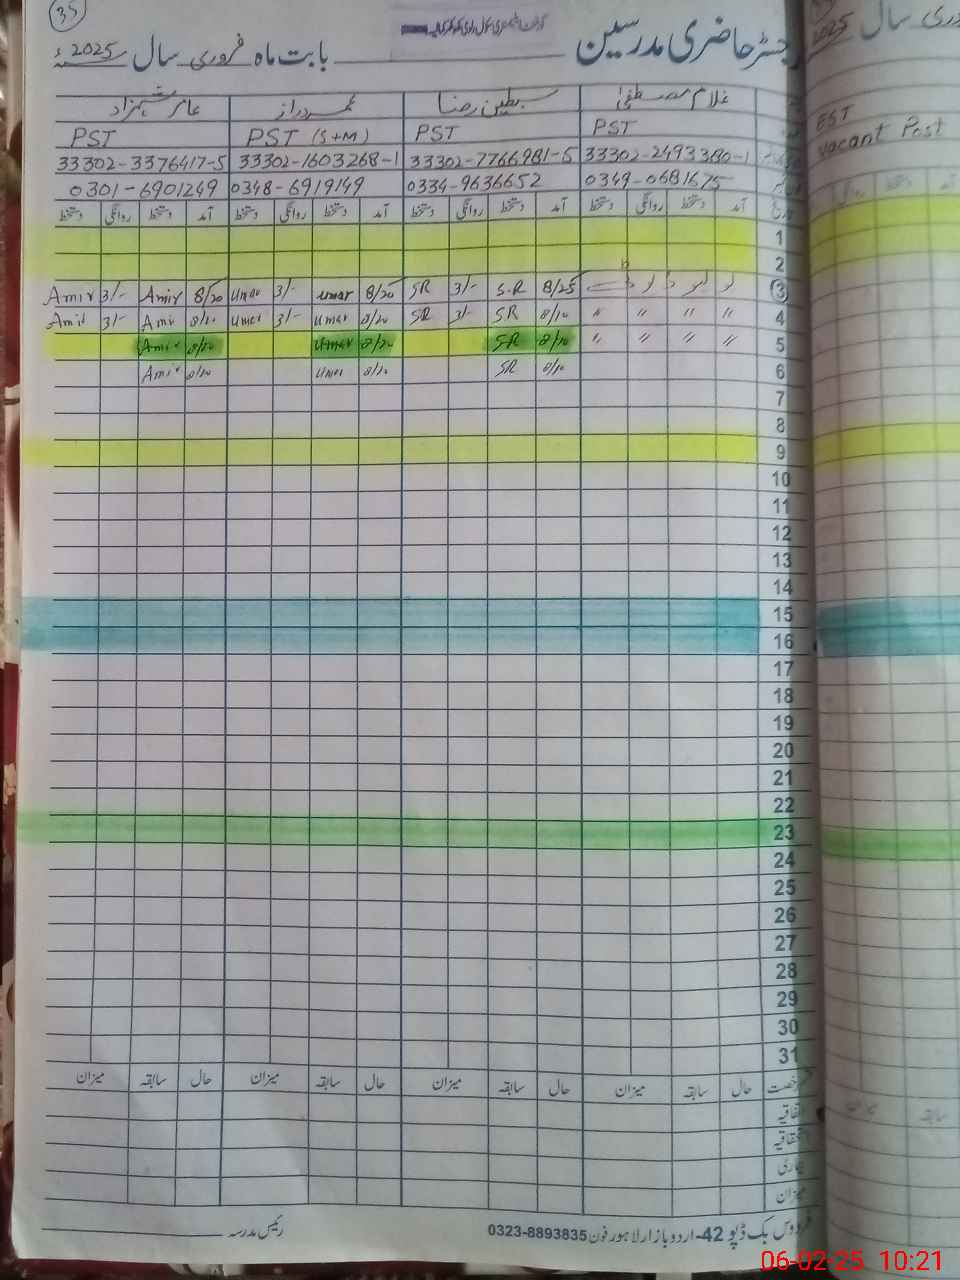 35
رجسٹر حاضری مدرسین بابت ماہ فروری سال 2025ء
غلام مصطفیٰ سبطین رضا عمر دراز عامر شہزاد
PST PST PST (S+M) PST
33302-2493380-1 33302-7766981-5 33302-1603268-1 33302-3376417-5
0349-0681675 0334-9636652 0348-6919149 0301-6901249
تاریخ آمد دستخط روانگی دستخط آمد دستخط روانگی دستخط آمد دستخط روانگی دستخط آمد دستخط روانگی دستخط
1
2
3 8/25 S.R 3/- SR 8/20 umar 3/- umar 8/20 Amir 3/- Amir
4 〃 〃 〃 〃 8/10 SR 3/- SR 8/20 umar 3/- umar 8/20 Amir 3/- Amir
5 〃 〃 〃 〃 8/10 SR 8/20 umar 8/20 Amir
6 8/10 SR 8/20 umar 8/20 Amir
7
8
9
10
11
12
13
14
15
16
17
18
19
20
21
22
23
24
25
26
27
28
29
30
31
رخصت حال سابقہ میزان حال سابقہ میزان حال سابقہ میزان حال سابقہ میزان
اتفاقیہ
استحقاقیہ
بیماری
میزان
فردوس بک ڈپو 42-اردو بازار لاہور فون 0323-8893835 رئیس مدرسہ
سال 2025
EST
vacant Post
آمد دستخط روانگی
سابقہ میزان
06-02-25 10:21